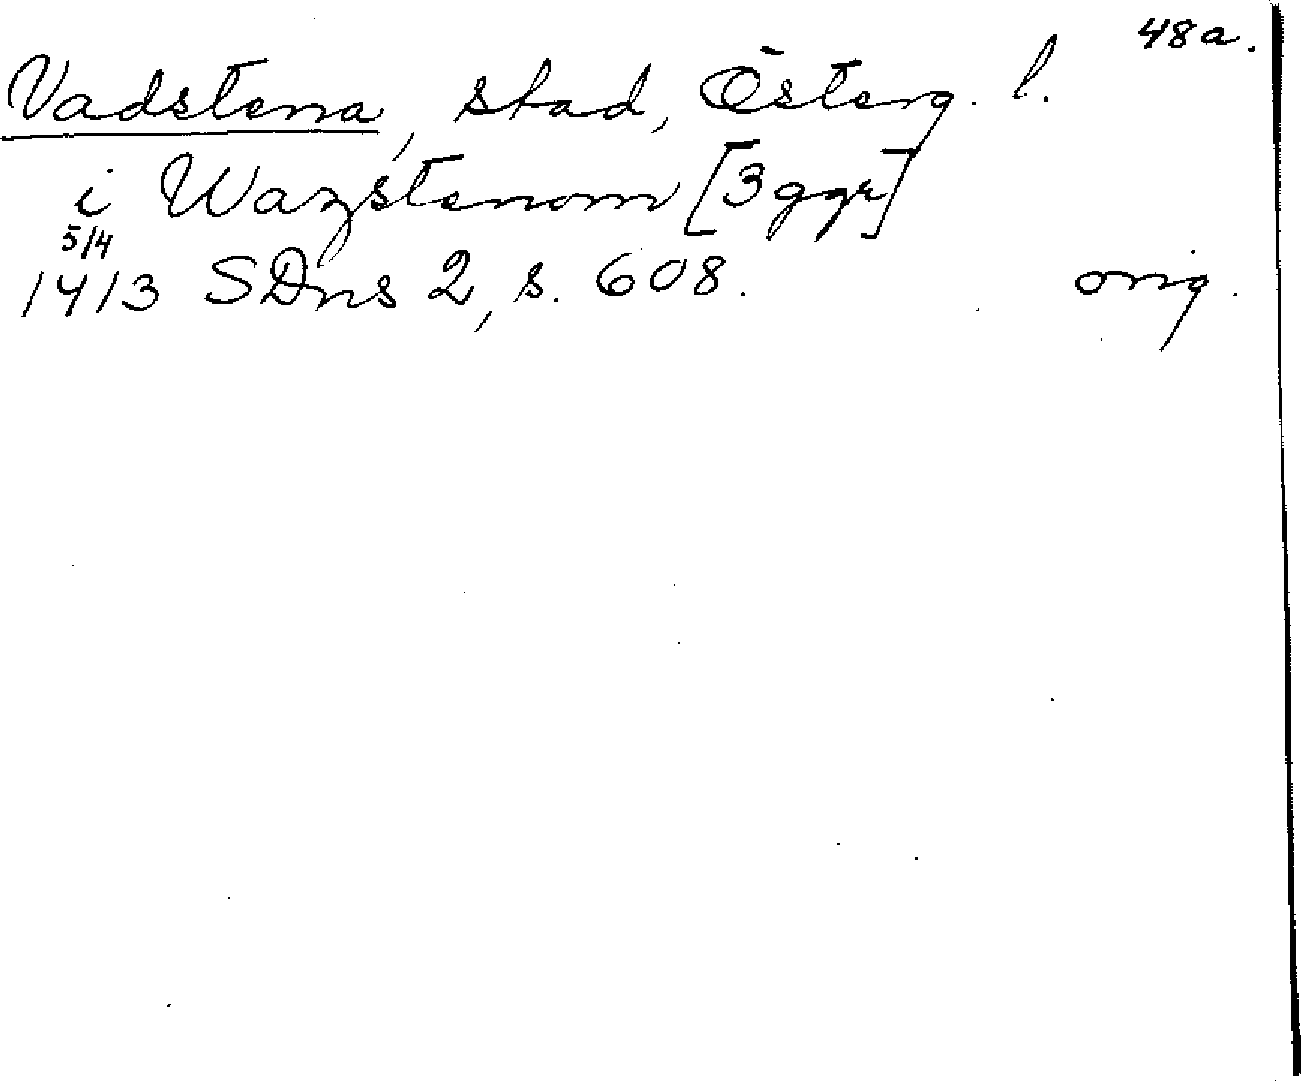 48a.
Vadstena, stad, Österg. l.
i Wazstenom [3 ggr]
5/4
1413 SDns 2, s. 608. orig.